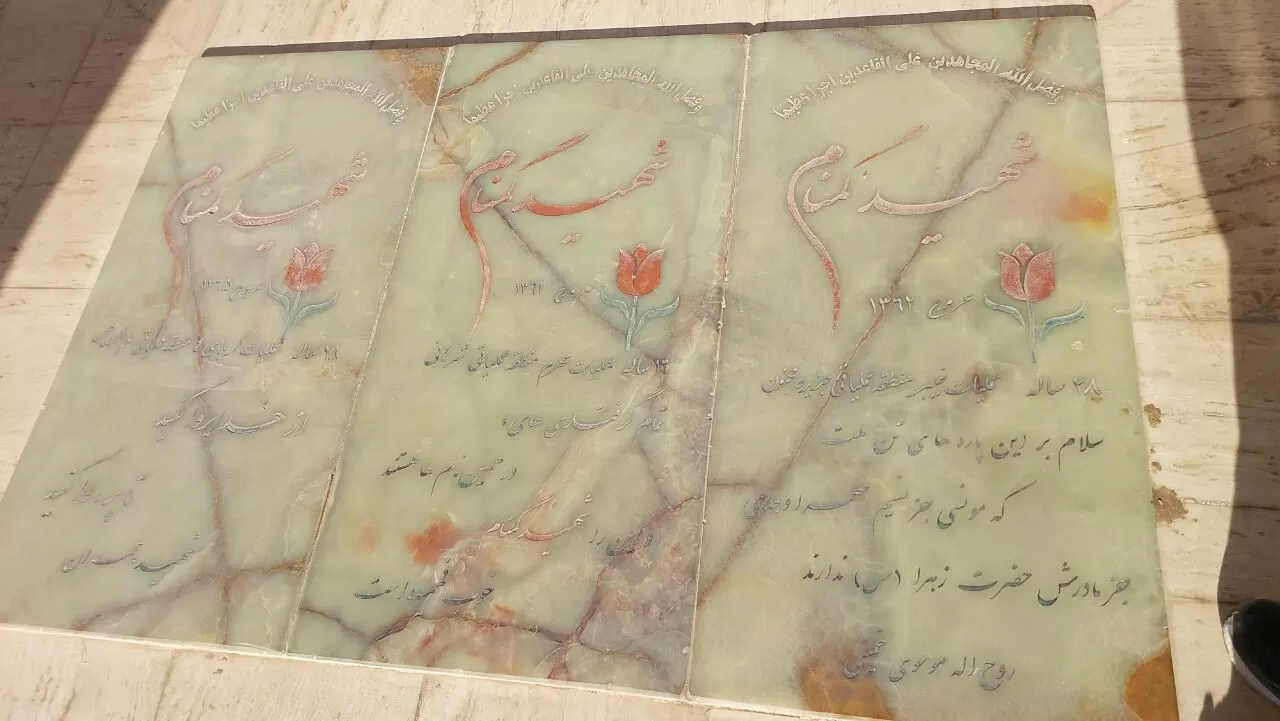 وفضل الله المجاهدین علی القاعدین اجرا عظیما
شهید گمنام
عروج ۱۳٦۲
۲۸ ساله عملیات خیبر منطقه عملیاتی جزیره مجنون
سلام بر این پاره های تن ملت
که مونسی جز نسیم صحرا و
جز مادرش حضرت زهرا (س) ندارند
روح اله موسوی خمینی
وفضل الله المجاهدین علی القاعدین اجرا عظیما
شهید گمنام
عروج ۱۳٦۱
۱۹ ساله عملیات محرم منطقه عملیاتی شرهانی
تمام گرفتاری های
در همین نام ها هستند
و این را شهید گمنام
خوب فهمیده است
وفضل الله المجاهدین علی القاعدین اجرا عظیما
شهید گمنام
عروج ۱۳٦۵
ساله عملیات کربلای منطقه عملیاتی
از خدا پروا کنید